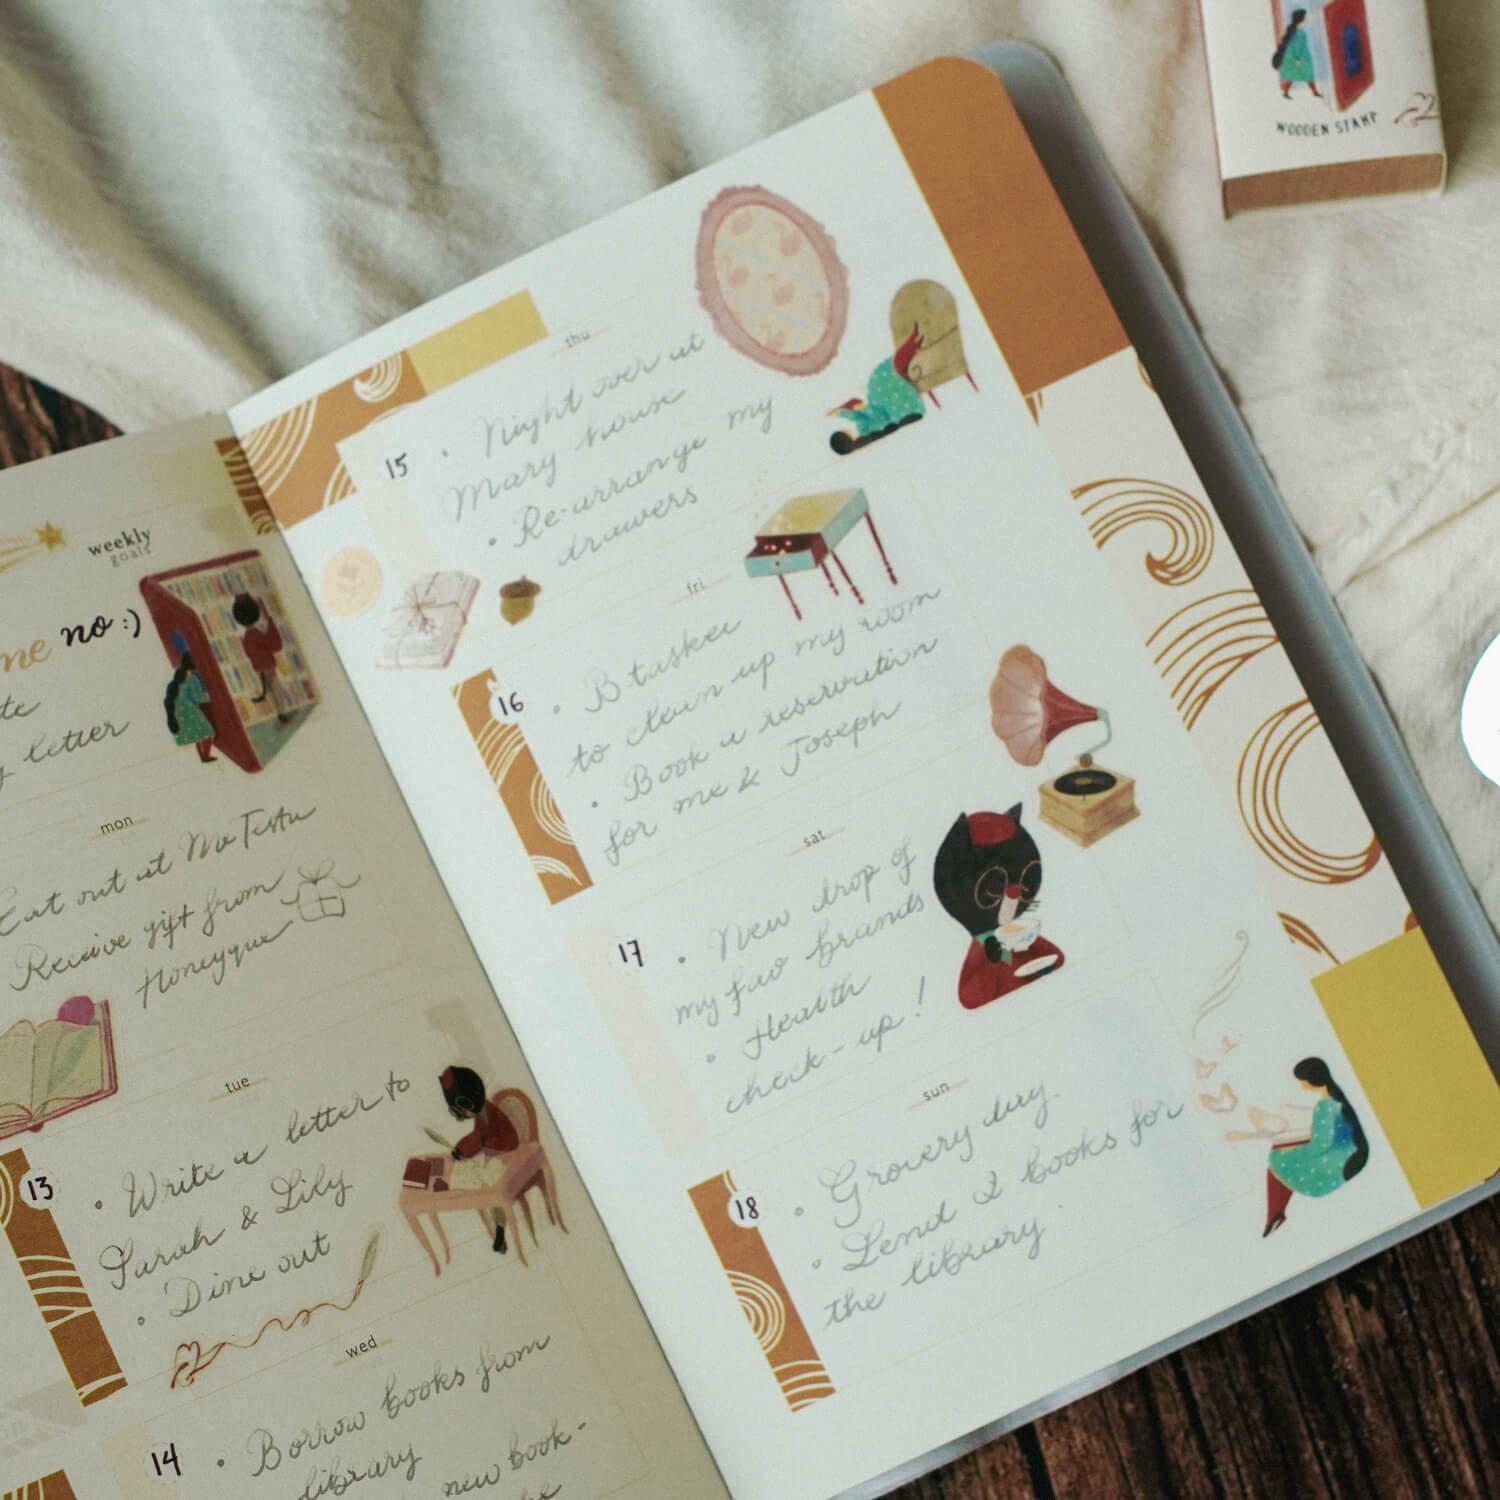 weekly
goals
me no :)
letter
mon
Eat out at
Receive gift from
Honeyque
tue
13
• Write a letter to
Sarah & Lily
• Dine out
wed
14
• Borrow books from
library
new book-
thu
15
• Night over at
Mary house
• Re-arrange my
drawers
fri
16
• B taskee
to clean up my room
• Book a reservation
for me & Joseph
sat
17
• New drop of
my fav brands
• Health
check-up!
sun
18
• Grocery day
• Lend 2 books for
the library
WOODEN STAMP